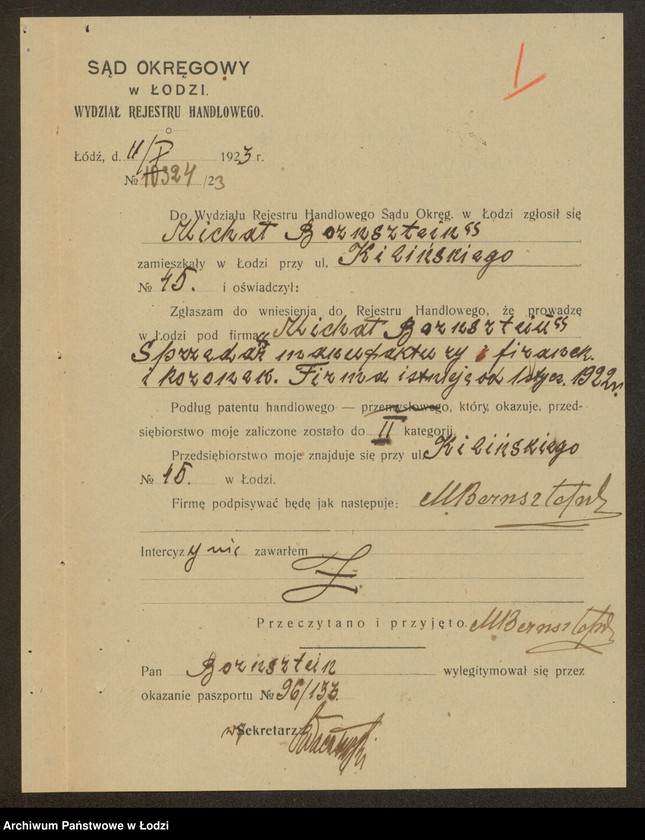 SĄD OKRĘGOWY
w ŁODZI.
WYDZIAŁ REJESTRU HANDLOWEGO.
Łódź, d. 11/X 1923 r.
№ 10324/23
Do Wydziału Rejestru Handlowego Sądu Okręg. w Łodzi zgłosił się
Michał Bornsztein
zamieszkały w Łodzi przy ul. Kilińskiego
№ 45. i oświadczył:
Zgłaszam do wniesienia do Rejestru Handlowego, że prowadzę
w Łodzi pod firmą „Michał Bornsztein"
Sprzedaż manufaktury i firanek
i koronek. Firma istnieje od 1 stycz. 1922 r.
Podług patentu handlowego — przemysłowego, który, okazuje, przed-
siębiorstwo moje zaliczone zostało do II kategorji
Przedsiębiorstwo moje znajduje się przy ul. Kilińskiego
№ 45. w Łodzi.
Firmę podpisywać będę jak następuje: MBernsztejn
Intercyzy nie zawarłem
Przeczytano i przyjęto MBernsztejn
Pan Bornsztein wylegitymował się przez
okazanie paszportu № 96/133
Sekretarz
Archiwum Państwowe w Łodzi